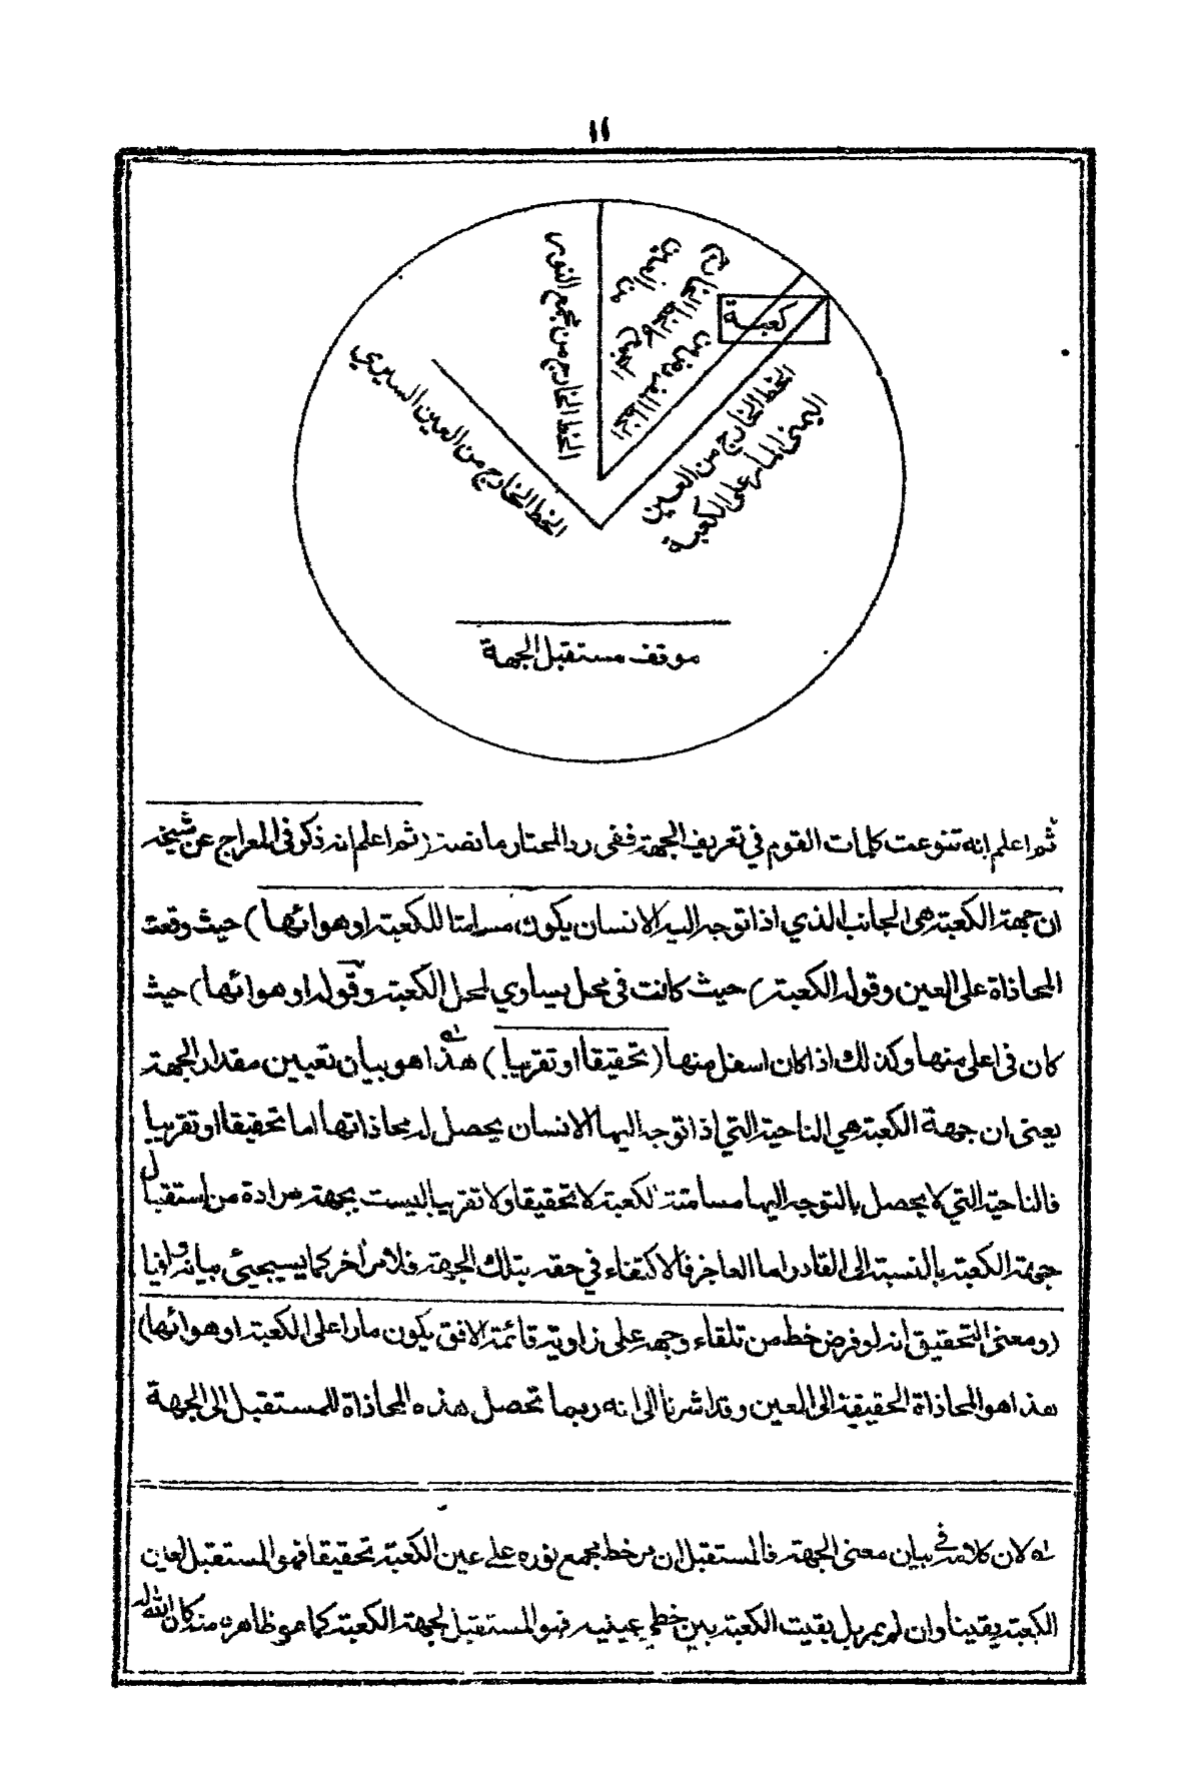 ١١
الخط الخارج من مجمع النور
الخط الخارج من العين اليسرى
كعبة
الخط الخارج من العين
اليمنى المار على الكعبة
موقف مستقبل الجهة
ثم اعلم انه تنوعت كلمات القوم في تعريف الجهة ففى رد المحتار ما نصه (ثم اعلم انه ذكر فى المعراج عن شيخه
ان جهة الكعبة هى الجانب الذي اذا توجه اليه الانسان يكون مسامتا للكعبة او هوائها) حيث وقعت
المحاذاة على العين وقوله الكعبة) حيث كانت فى محل يساوي لمحل الكعبة وقوله او هوائها) حيث
كان فى اعلى منها وكذلك اذا كان اسفل منها (تحقيقا او تقريبا) هذا هو بيان تعيين مقدار الجهة
يعنى ان جهة الكعبة هي الناحية التي اذا توجه اليها الانسان يحصل له محاذاتها اما تحقيقا او تقريبا
فالناحية التي لا يحصل بالتوجه اليها مسامتة الكعبة لا تحقيقا ولا تقريبا ليست بجهة مرادة من استقبال
جهة الكعبة بالنسبة الى القادر اما العاجز فالاكتفاء في حقه بتلك الجهة فلامر آخر كما يسيجيئ بيانه وافيا
(ومعنى التحقيق انه لو فرض خط من تلقاء وجهه على زاوية قائمة الى الافق يكون مارا على الكعبة او هوائها)
هذا هو المحاذاة الحقيقة الى المعين وقد اشرنا الى انه ربما تحصل هذه المحاذاة للمستقبل الى الجهة
له لان كلامه في بيان معنى الجهة فالمستقبل ان مر خط مجمع نوره على عين الكعبة تحقيقا فهو المستقبل لعين
الكعبة يقينا وان لم يمر بل بقيت الكعبة بين خطي عينيه فهو المستقبل لجهة الكعبة كما هو ظاهر منه كان الله له